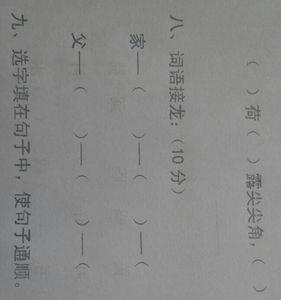 （ ）荷（ ）露尖尖角，（ ）
八、词语接龙：（10分）
家—（ ）—（ ）—（
父—（ ）—（ ）—（
九、选字填在句子中，使句子通顺。